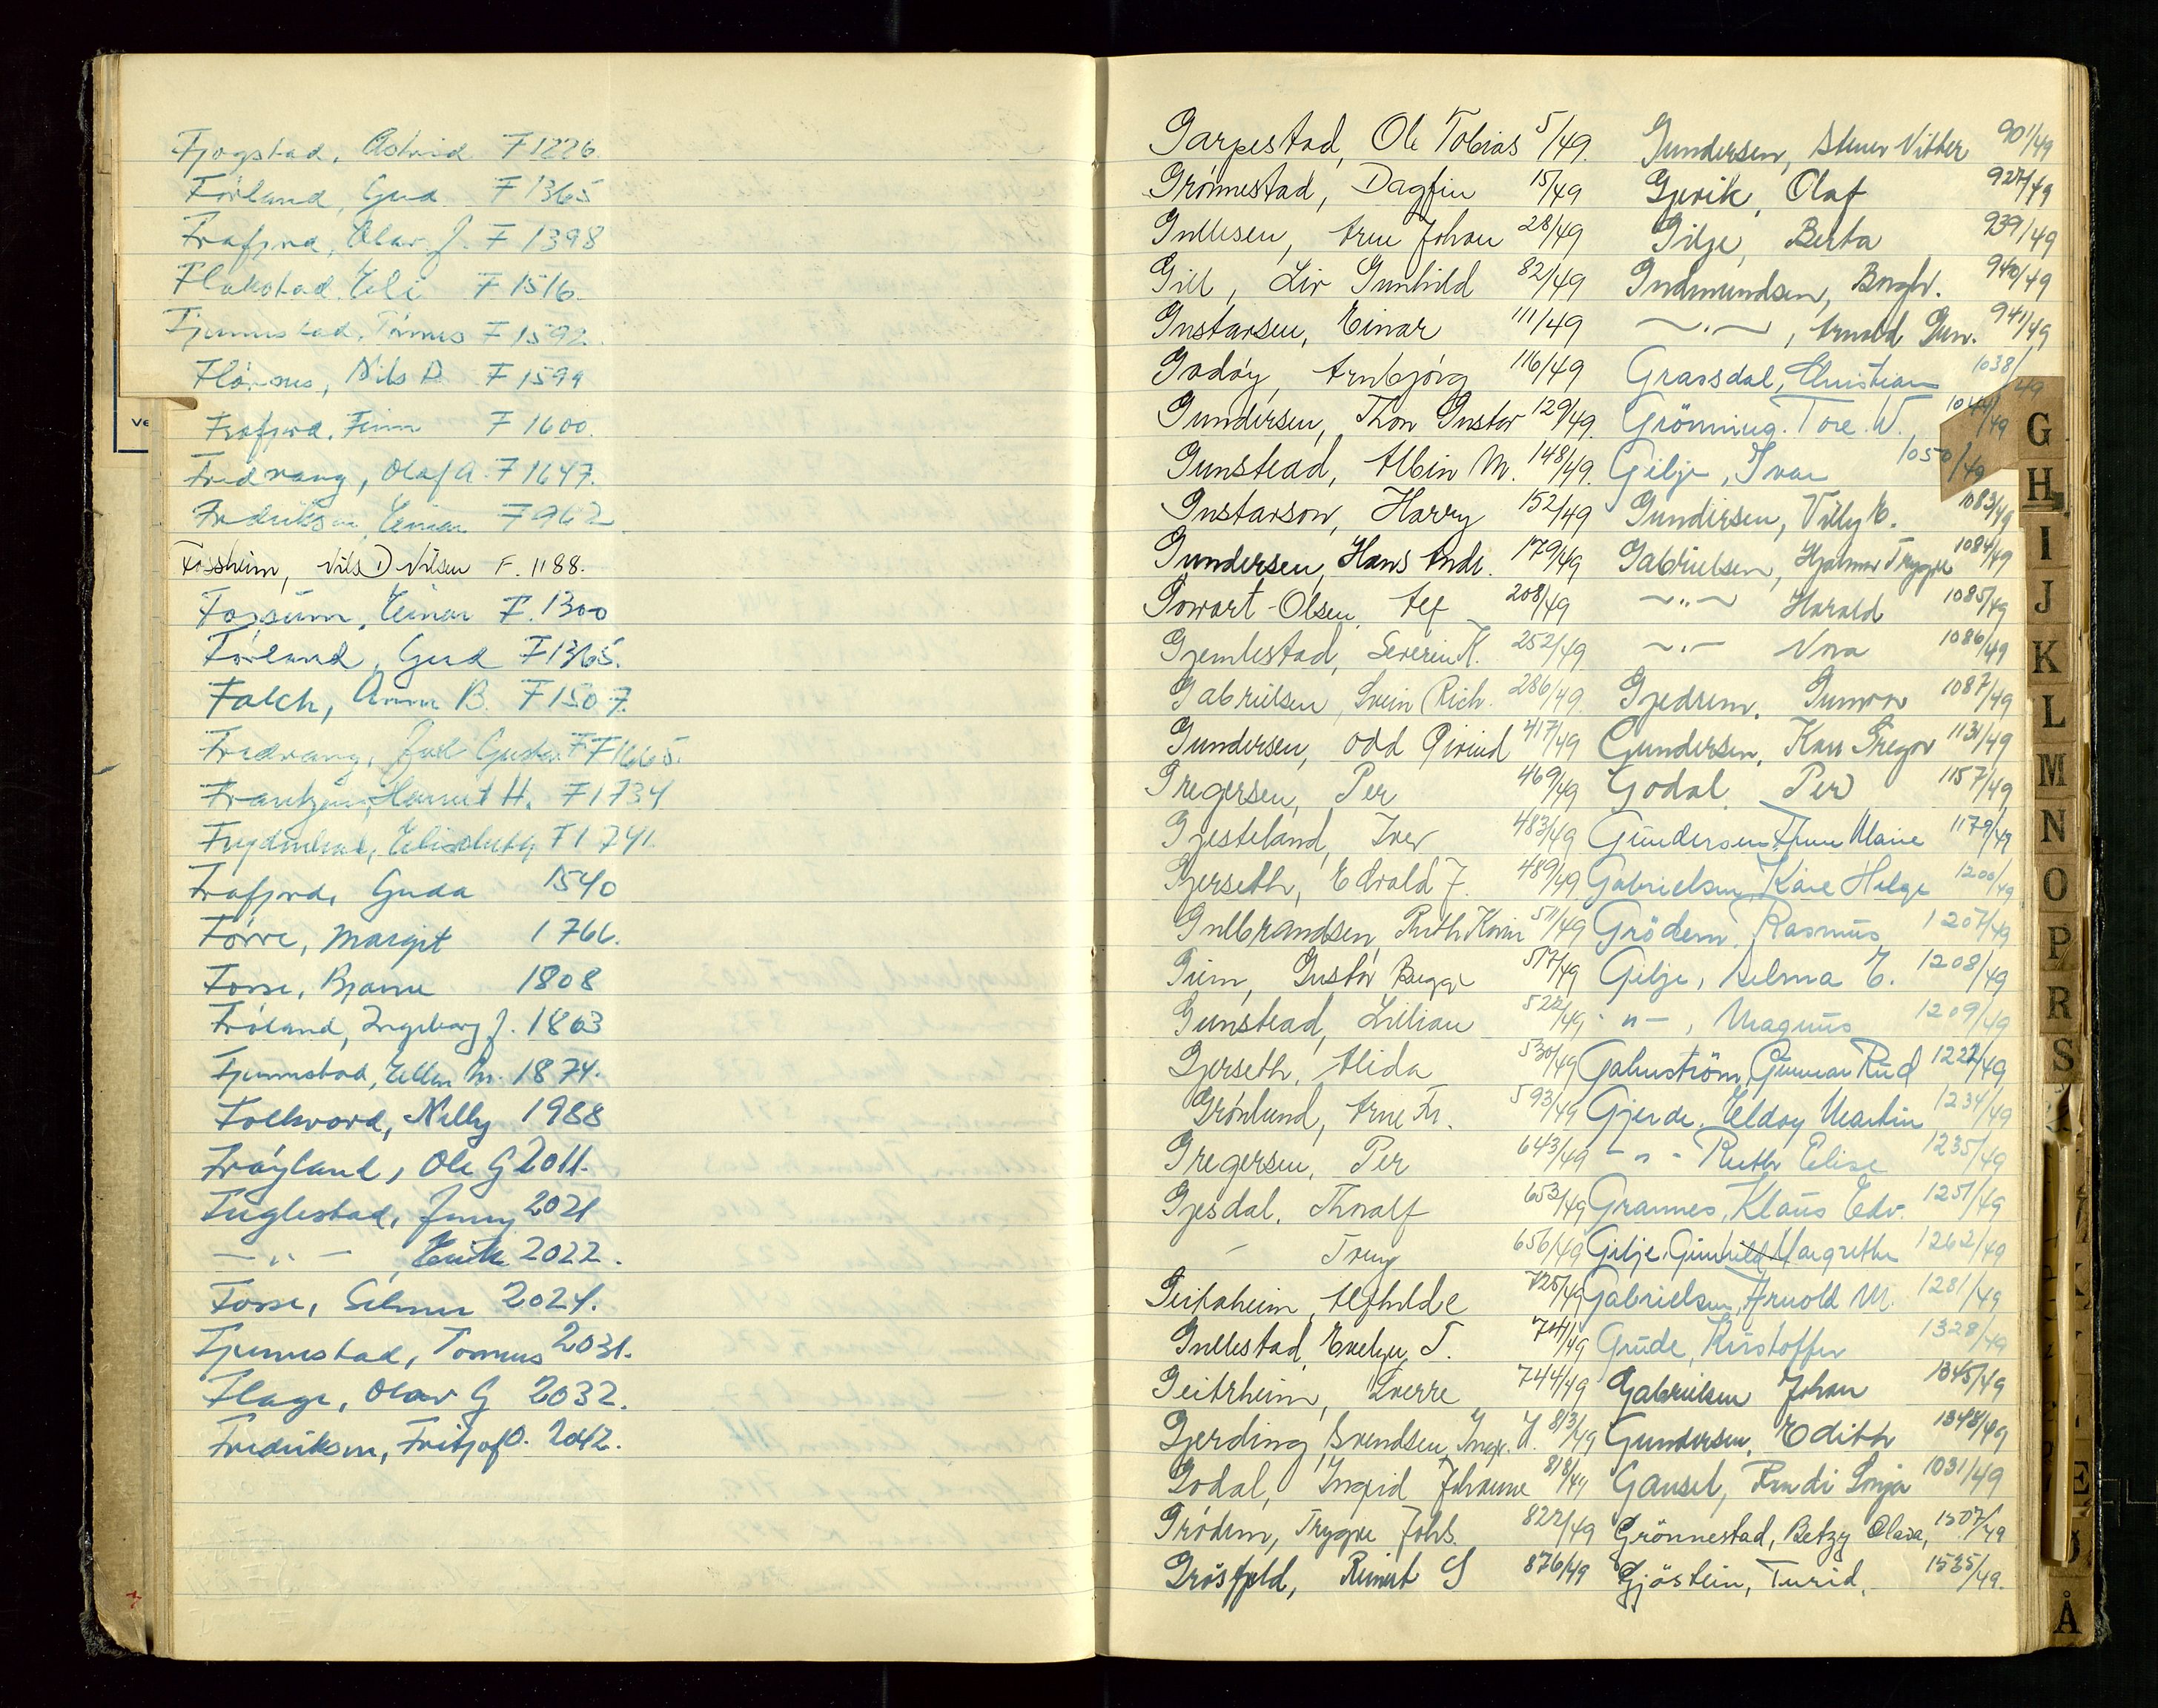 Fjogstad, Astrid F 1226.
Førland, Gud. F 1365
Frafjord, Olav J. F 1398
Flakstad, Eli F 1516.
Fjermestad, Tønnes F 1592.
Flørnes, Nils D F 1599
Frafjord, Finn F 1600.
Fredvang, Olaf A. F 1647.
Fredriksen, Einar F 962
Fossheim, Nils D Nilsen F. 1188.
Fossum, Einar F. 1300
Førland, Gud F 1365.
Falch, Anna B. F 1507.
Fredvang, Gustav F F 1665.
Frantzen, Harriet H. F 1734
Elisabeth F 1741.
Frafjord, Guda 1540
Førre, Margit 1766.
Fosse, Bjarne 1808
Frøland, Ingeborg J. 1863
Fjermestad, Ellen M. 1874.
Folkvord, Nelly 1988
Frøyland, Ole G 2011.
Fuglestad, Jenny 2021
— " — , Erik 2022.
Fosse, Selmer 2024.
Fjermestad, Tønnes 2031.
Flage, Olav G 2032.
Fredriksen, Fritjof O. 2042.
Garpestad, Ole Tobias 5/49.
Grønnestad, Dagfin 15/49
Gullesen, Arne Johan 28/49
Gill, Liv Gunhild 82/49
Gustavsen, Einar 111/49
Godøy, Arnbjørg 116/49
Gundersen, Thon Gustav 129/49.
Gunstead, Albin M. 148/49.
Gustavson, Harry 152/49
Gundersen, Hans Andr. 179/49
Gowart-Olsen, Alf 208/49
Gjemlestad, Severin K. 252/49
Gabrielsen, Svein Rich. 286/49
Gundersen, Odd Øivind 417/49
Gregersen, Per 469/49
Gjesteland, Iver 483/49
Gjerseth, Edvald J. 489/49
Gulbrandsen, Ruth Karin 511/49
Giim, Gustav Bugge 517/49
Gunstead, Lillian 522/49
Gjerseth, Alida 530/49
Grønlund, Arne Fr. 593/49
Gregersen, Per 643/49
Gjesdal, Thoralf 653/49
— Trany 656/49
Geitaheim, Alfhilde 725/49
Gullestad, Evelyn T. 741/49
Geitrheim, Sverre 744/49
Gjerding Svendsen, Inge. J. 813/49
Godal, Ingrid Johanne 818/49
Grødem, Trygve Johs. 822/49
Grøsfjeld, Reinert S 876/49
Gundersen, Stener Vither 901/49
Gjevik, Olaf 927/49
Gilje, Berta 939/49
Gudmundsen, Borgh. 940/49
— " — , Arnold Gun. 941/49
Grassdal, Christian 1038/49
Grönning, Tore W. 1044/49
Gilje, Ivar 1050/49
Gundersen, Villy E. 1083/49
Gabrielsen, Hjalmar Trygve 1084/49
— " — Harald 1085/49
— " — Nora 1086/49
Gjedrem, Gunvor 1087/49
Gundersen, Kåre Gregor 1131/49
Godal, Per 1157/49
Gundersen, Anne Marie 1179/49
Gabrielsen, Kåre Helge 1200/49
Grödem, Rasmus 1207/49
Gilje, Selma E. 1208/49
— " — , Magnus 1209/49
Galmström, Gunnar Rud 1222/49
Gjerde, Eldøy Martin 1234/49
— " — Ruth Elise 1235/49
Grannes, Klaus Edv. 1251/49
Gilje, Gunhild Margrethe 1262/49
Gabrielsen, Arnold M. 1281/49
Grude, Kristoffer 1328/49
Gabrielsen Johan 1345/49
Gundersen, Edith 1348/49
Gausel, Randi Sonja 1031/49
Grönnestad, Betzy Olava, 1507/49
Gjöstein, Turid. 1535/49.
G
H
I
J
K
L
M
N
O
P
R
S
Å